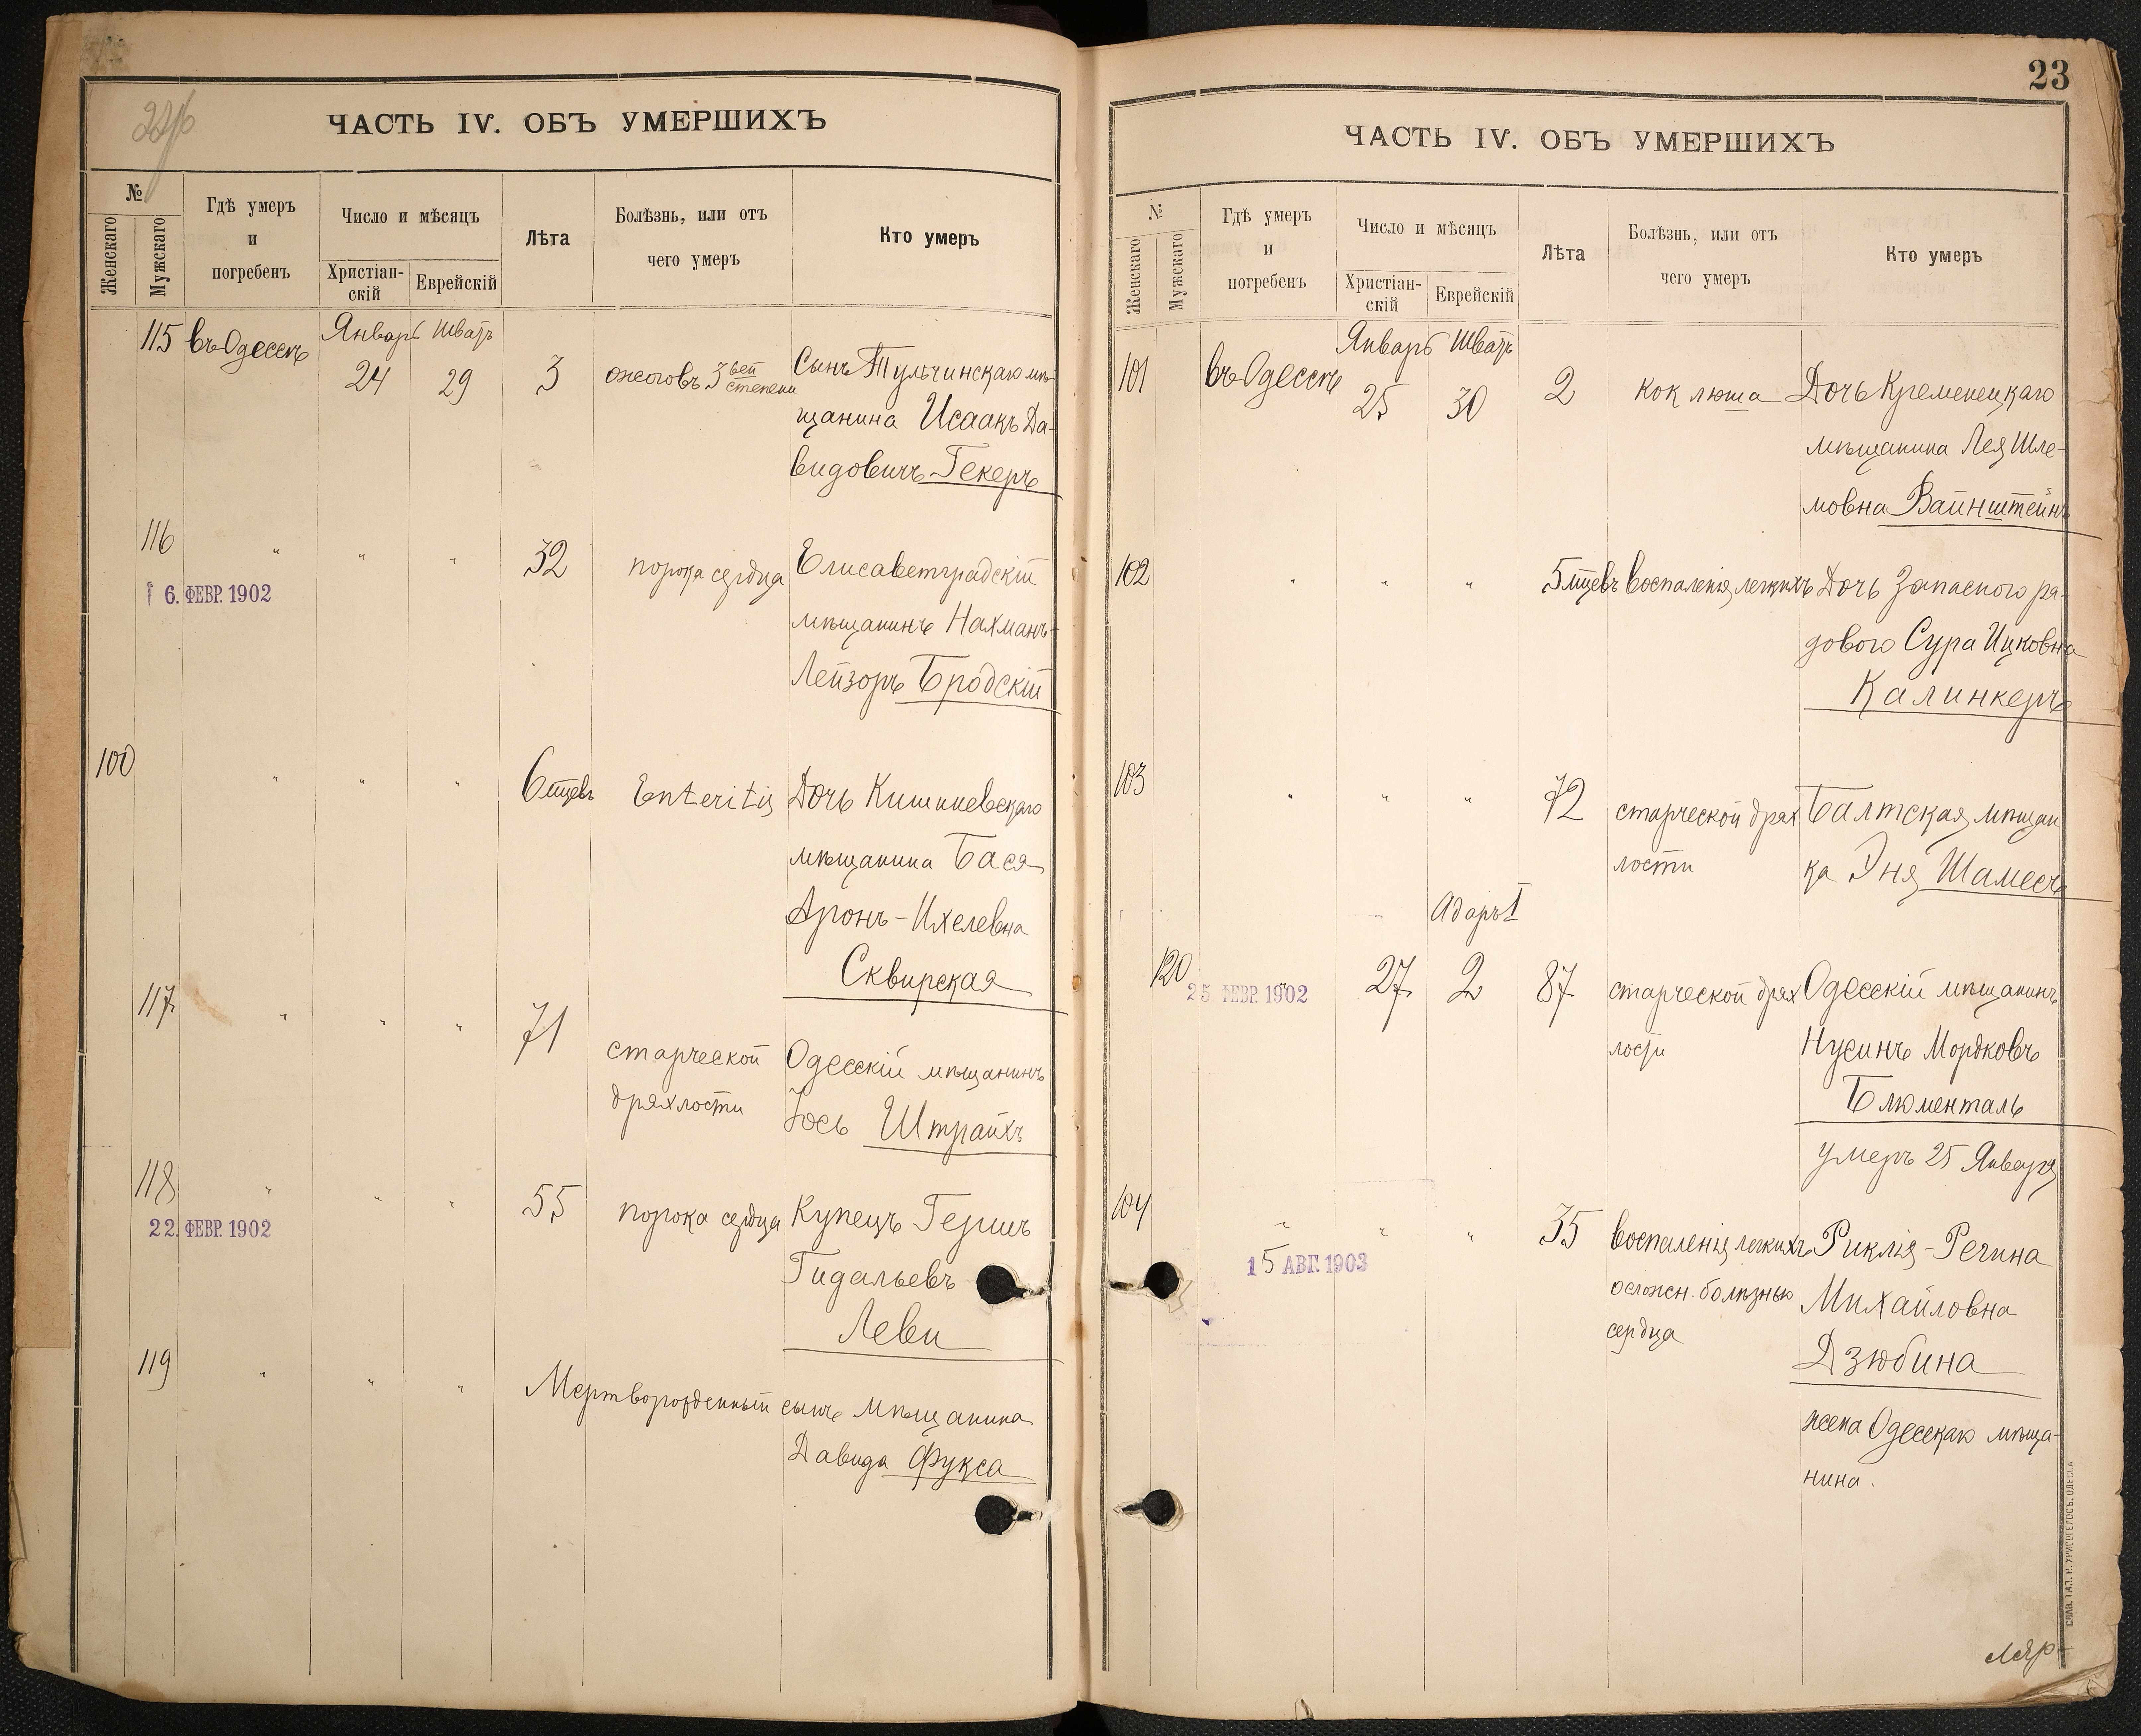 ЧАСТЬ IV. ОБЪ УМЕРШИХЪ
№
Женскаго
Мужскаго
Гдѣ умеръ
и
погребенъ
Число и мѣсяцъ
Христіан-
скій
Еврейскій
Лѣта
Болѣзнь, или отъ
чего умеръ
Кто умеръ
115 въ Одессѣ Январь Шватъ
24 29 3 ожоговъ 3вей степени Сынъ Тульчинскаго мѣ-
щанина Исаакъ Да-
видовичъ Гекеръ
116 " " " 32 порока сердца Елисаветградскій
6. ФЕВР. 1902
мѣщанинъ Нахманъ-
Лейзоръ Бродскій
100 " " " 6 мцевъ Enteritis Дочь Кишиневскаго
мѣщанина Бася
Аронъ-Ихелевна
Сквирская
117 " " " 71 старческой Одесскій мѣщанинъ
дряхлости Іось Штрайхъ
118 " " " 55 порока сердца Купецъ Гершъ
22. ФЕВР. 1902
Гидальевъ
Леви
119 " " " Мертворожденный сынъ мѣщанина
Давида Фукса
23
ЧАСТЬ IV. ОБЪ УМЕРШИХЪ
№
Женскаго
Мужскаго
Гдѣ умеръ
и
погребенъ
Число и мѣсяцъ
Христіан-
скій
Еврейскій
Лѣта
Болѣзнь, или отъ
чего умеръ
Кто умеръ
Январь Шватъ
101 въ Одессѣ 25 30 2 коклюша Дочь Кременецкаго
мѣщанина Лея Шле-
мовна Вайнштейнъ
102 " " " 5 мцевъ воспаленія легкихъ Дочь Запасного ря-
дового Сура Ицковна
Калинкеръ
103 " " " 72 старческой дрях Балтская мѣщан
лости ка Эня Шамесъ
Адаръ I
120 27 2 87 старческой дрях Одесскій мѣщанинъ
25 ФЕВР. 1902
лости Нусинъ Мордковъ
Блюменталь
умеръ 25 Января
104 " " " 35 воспаленія легкихъ Риклія-Регина
15 АВГ. 1903
осложн. болѣзнью Михайловна
сердца
Дзюбина
жена Одесскаго мѣща-
нина.